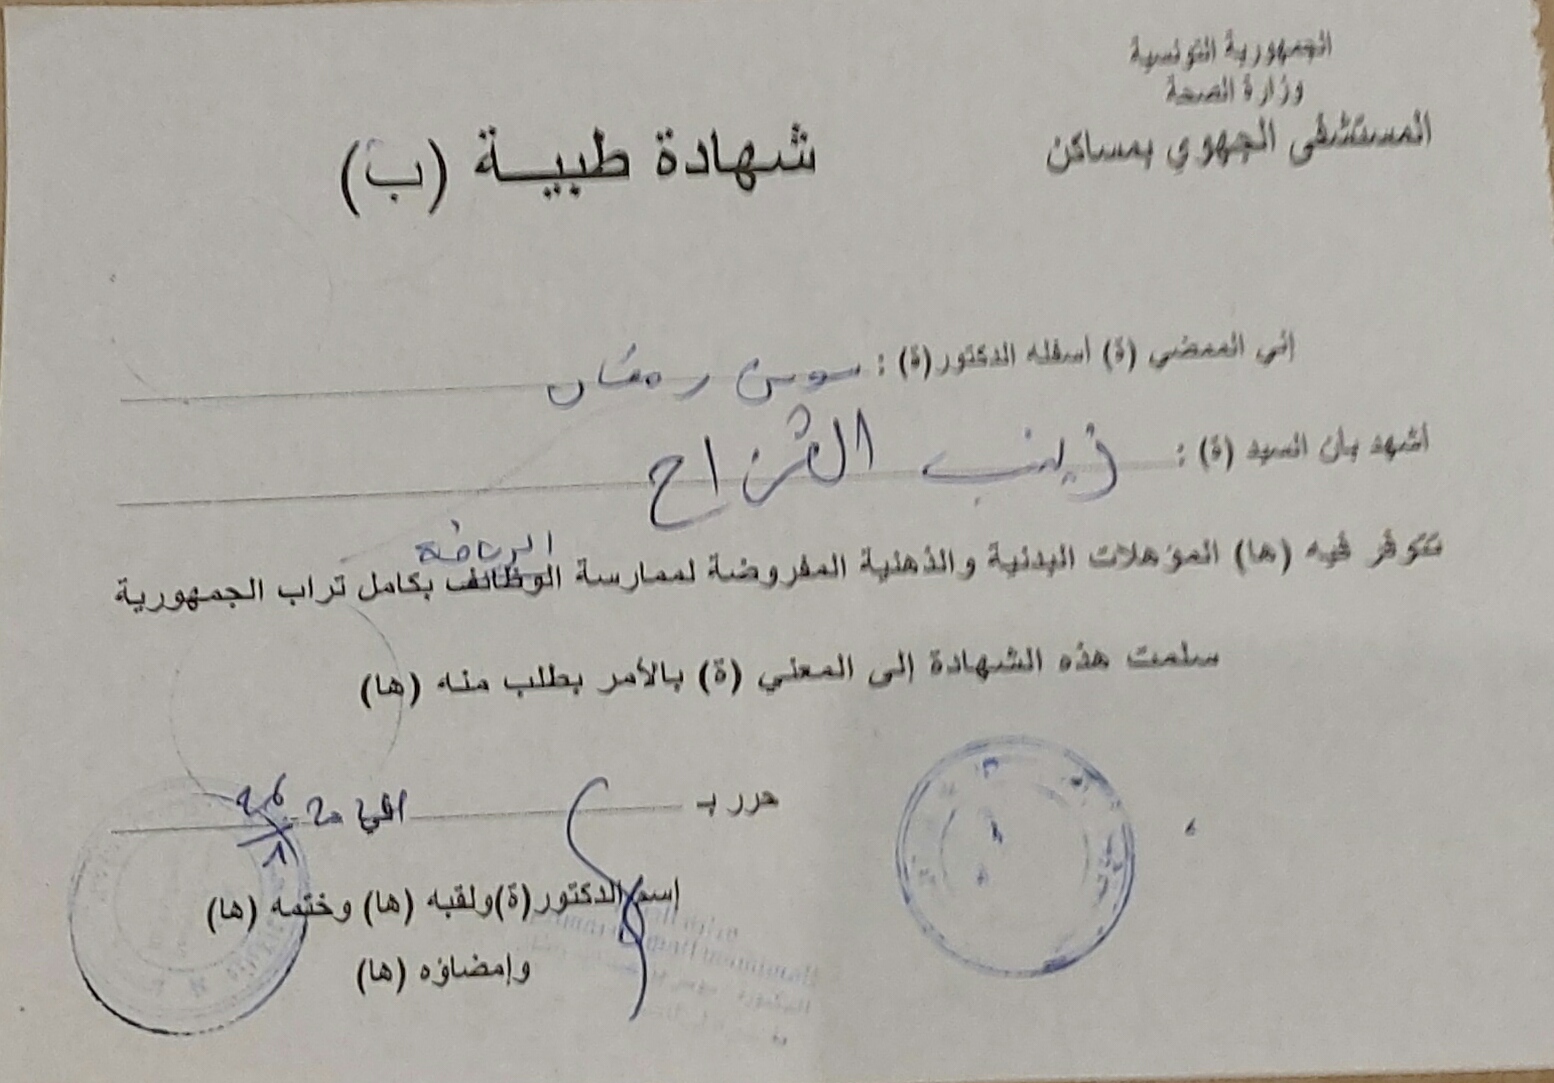 الجمهورية التونسية
وزارة الصحة
المستشفى الجهوي بمساكن
شهادة طبية (ب)
إني الممضي (ة) أسفله الدكتور(ة) : سوسن رمضان
أشهد بأن السيد (ة) : زينب القزاح
الرياضة
تتوفر فيه (ها) المؤهلات البدنية والذهنية المفروضة لممارسة الوظائف بكامل تراب الجمهورية
سلمت هذه الشهادة إلى المعني (ة) بالأمر بطلب منه (ها)
حرر بـ في
إسم الدكتور(ة)ولقبه (ها) وختمه (ها)
وإمضاؤه (ها)